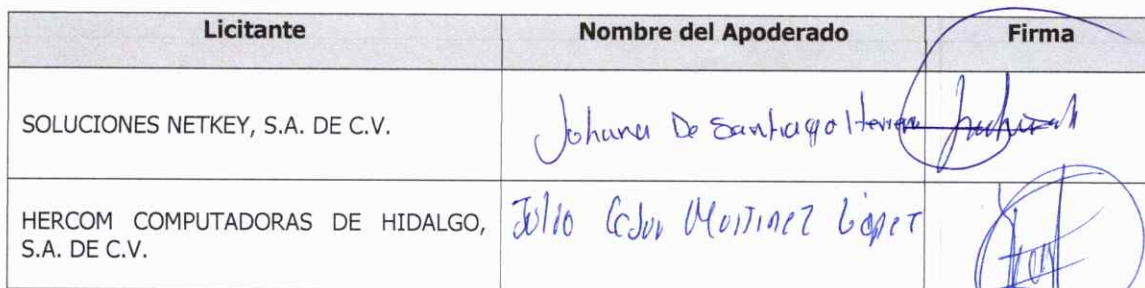 Licitante Nombre del Apoderado Firma
SOLUCIONES NETKEY, S.A. DE C.V. Johana De Santiago Herrera
HERCOM COMPUTADORAS DE HIDALGO, Julio Cesar Martinez López
S.A. DE C.V.